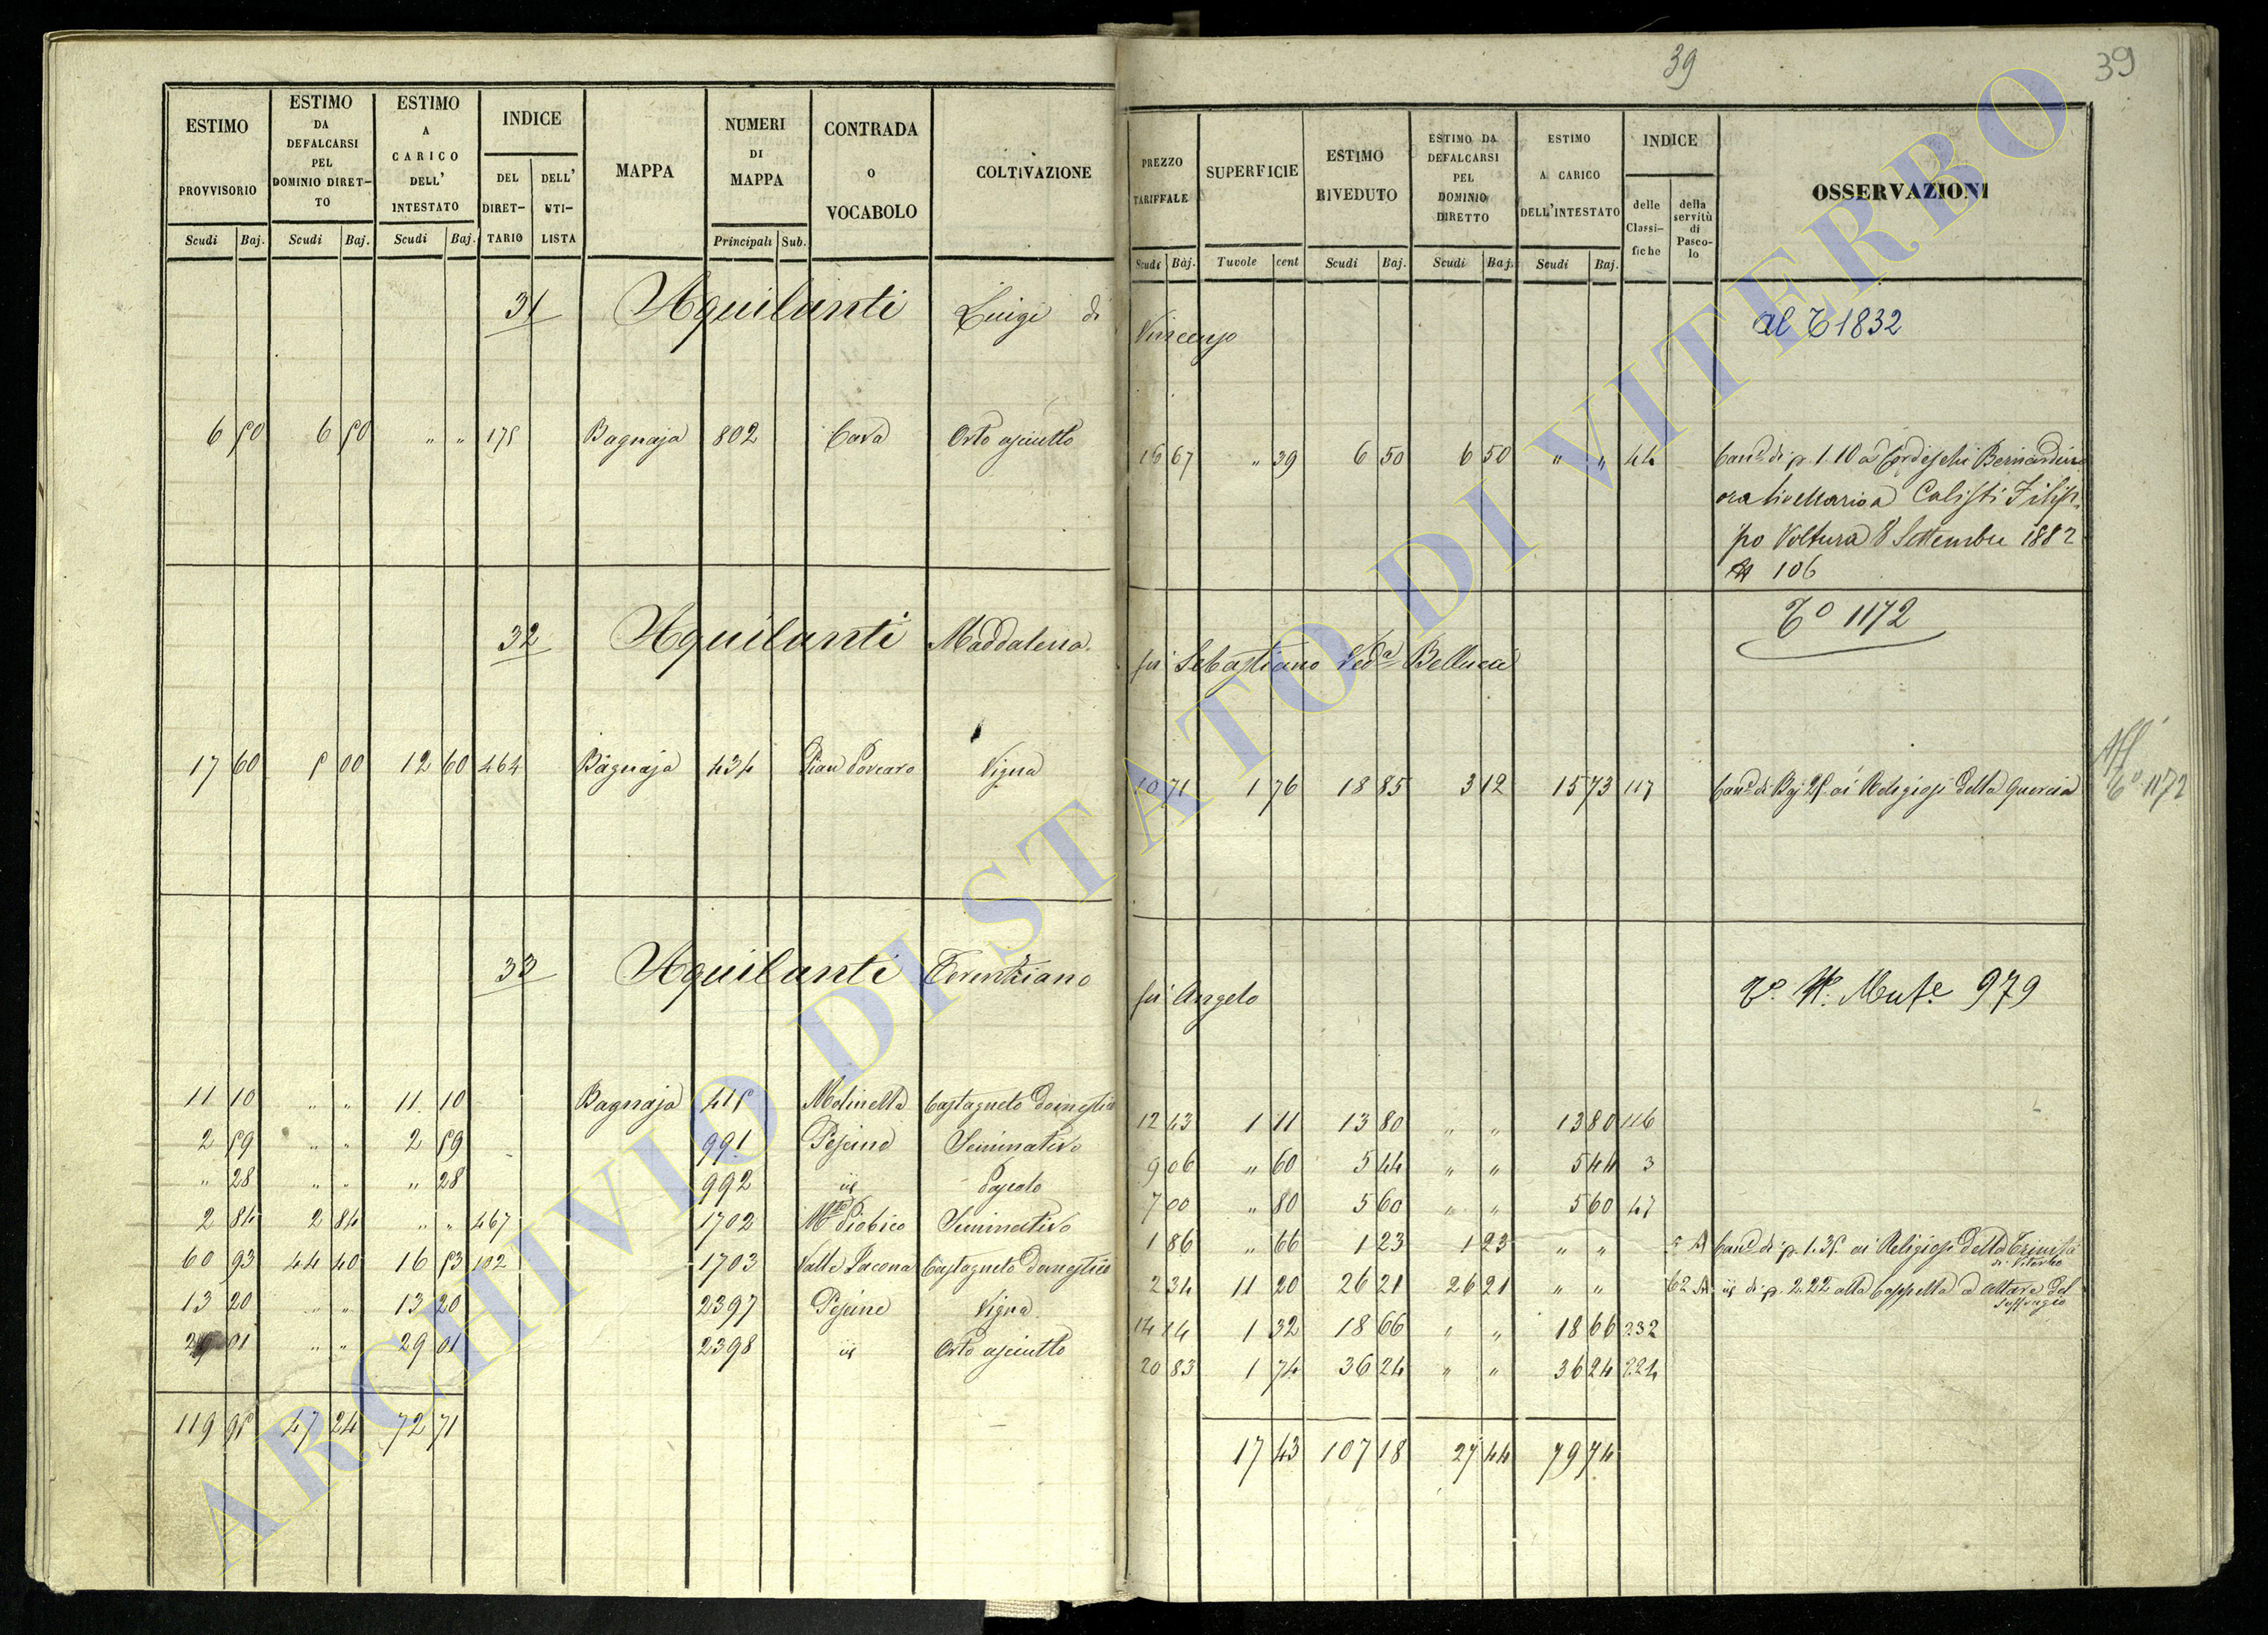 39
39
ESTIMO PROVVISORIO Scudi Baj.
ESTIMO DA DEFALCARSI PEL DOMINIO DIRET- TO Scudi Baj.
ESTIMO A CARICO DELL' INTESTATO Scudi Baj.
INDICE DEL DIRET- TARIO DELL' UTI- LISTA
MAPPA
NUMERI DI MAPPA Principali Sub.
CONTRADA O VOCABOLO
COLTIVAZIONE
PREZZO TARIFFALE Scudi Baj.
SUPERFICIE Tavole cent
ESTIMO RIVEDUTO Scudi Baj.
ESTIMO DA DEFALCARSI PEL DOMINIO DIRETTO Scudi Baj.
ESTIMO A CARICO DELL'INTESTATO Scudi Baj.
INDICE delle Classi- fiche della servitù di Pasco- lo
OSSERVAZIONI
31 Aquilanti Luigi di Vincenzo al T 1832
6 50 6 50 " " 175 Bagnaja 802 Cava Orto asciutto 16 67 " 39 6 50 6 50 " " 44 Can.e di p. 1.10 a Cordeschi Bernardino
ora a Calisti Filip
po Voltura 8 Settembre 1882
106
32 Aquilanti Maddalena fu Sebastiano Ved.a Bellucci T.o 1172
17 60 5 00 12 60 464 Bagnaja 434 Pian Porcaro Vigna 10 71 1 76 18 85 3 12 15 73 117 Can.e di Baj 25 ai Religiosi della Quercia
T.o 1172
33 Aquilanti Terenziano fu Angelo 979
11 10 " " 11 10 Bagnaja 415 Molinella Castagneto domestico 12 43 1 11 13 80 " " 13 80 116
2 59 " " 2 59 991 Pescine Seminativo 9 06 " 60 5 44 " " 5 44 3
" 28 " " " 28 992 id Pascolo 7 00 " 80 5 60 " " 5 60 47
2 84 2 84 " " 467 1702 Piobico Seminativo 1 86 " 66 1 23 1 23 " " 5 A Can.e di p. 1.35 ai Religiosi della Trinità
di Viterbo
60 93 44 40 16 53 102 1703 Valle Pacona Castagneto domestico 2 34 11 20 26 21 26 21 " " 62 A id di p. 2.22 alla Cappella a altare del
Suffragio
13 20 " " 13 20 2397 Pescine Vigna 14 14 1 32 18 66 " " 18 66 232
29 01 " " 29 01 2398 id Orto asciutto 20 83 1 74 36 24 " " 36 24 224
119 95 47 24 72 71 17 43 107 18 27 44 79 74
ARCHIVIO DI STATO DI VITERBO